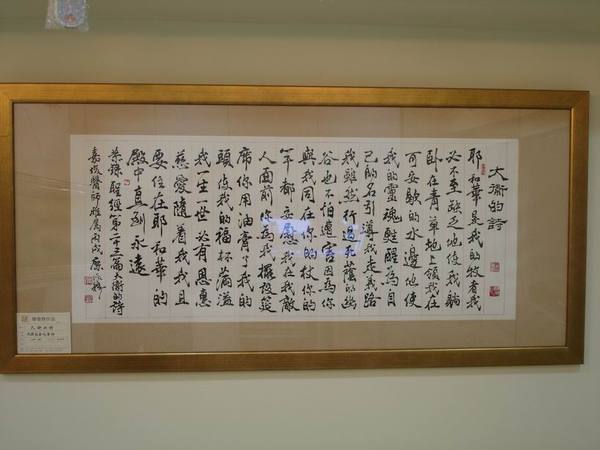 大衛的詩
耶和華是我的牧者我
必不至缺乏他使我躺
臥在青草地上領我在
可安歇的水邊他使
我的靈魂甦醒為自
己的名引導我走義路
我雖然行過死蔭的幽
谷也不怕遭害因為你
與我同在你的杖你的
竿都安慰我在我敵
人面前你為我擺設筵
席你用油膏了我的
頭使我的福杯滿溢
我一生一世必有恩惠
慈愛隨著我我且
要住在耶和華的
殿中直到永遠
恭錄聖經第二十三篇大衛的詩
醫師雅屬丙戌廖
大衛的詩